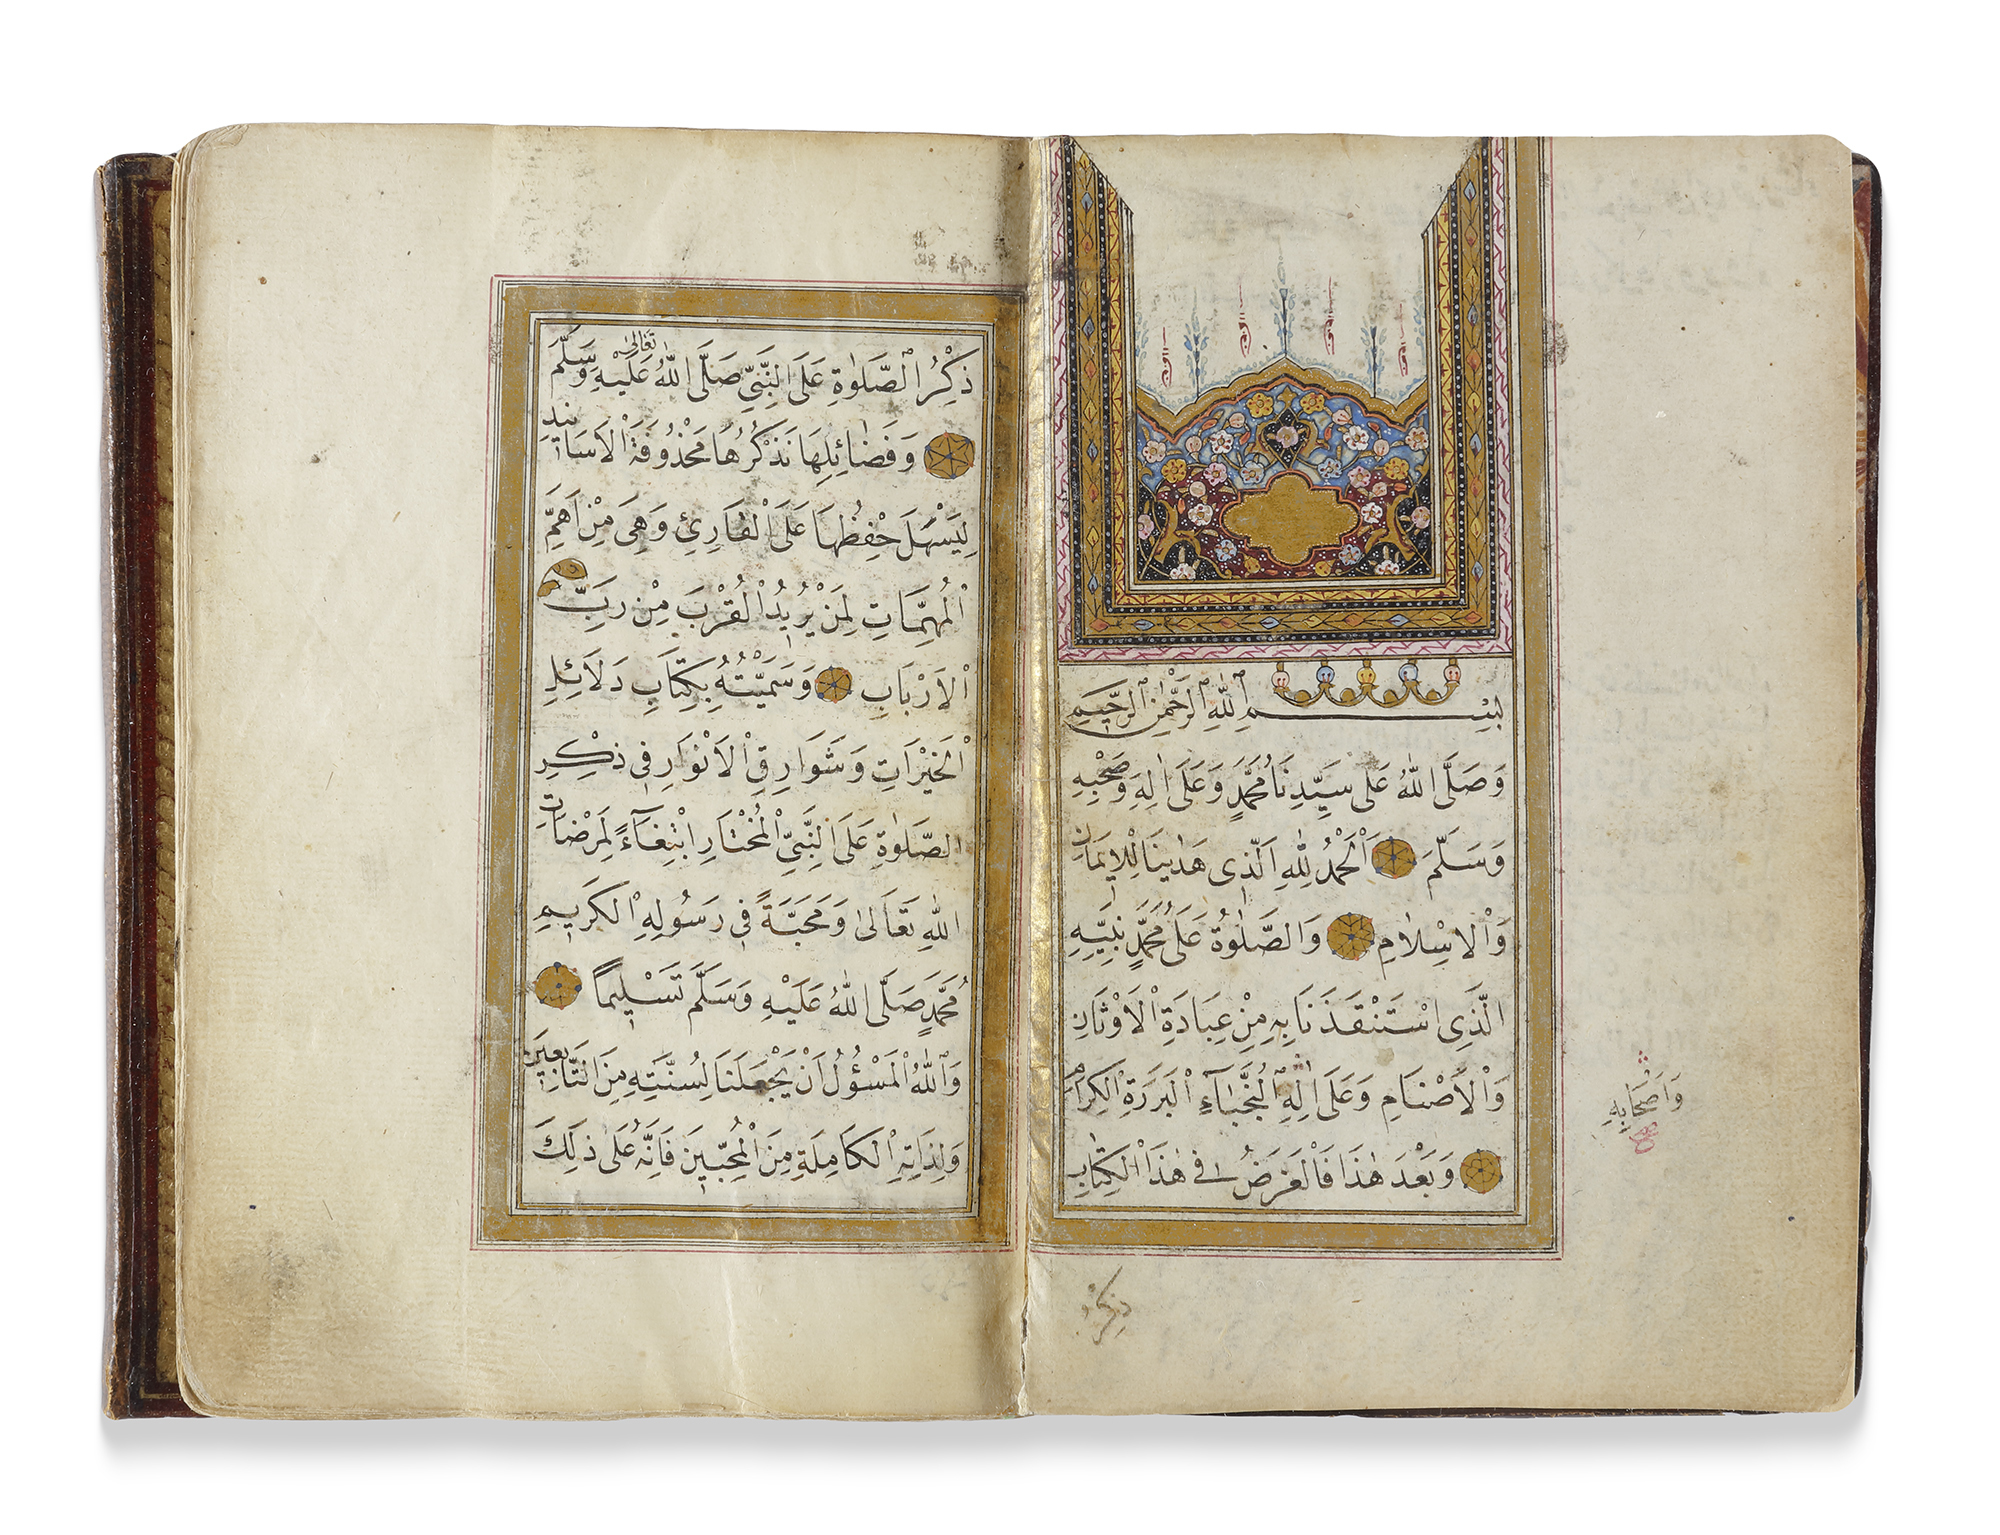 بِسْمِ اللهِ الرَّحْمٰنِ الرَّحِيمِ
وَصَلَّى اللهُ عَلٰى سَيِّدِنَا مُحَمَّدٍ وَعَلَى اٰلِهِ وَصَحْبِهِ
وَسَلَّمَ اَلْحَمْدُ لِلّٰهِ الَّذِى هَدٰينَا لِلْاِيمَانِ
وَالْاِسْلَامِ وَالصَّلٰوةُ عَلٰى مُحَمَّدٍ نَبِيِّهِ
الَّذِى اسْتَنْقَذَنَا بِهِ مِنْ عِبَادَةِ الْاَوْثَانِ
وَالْاَصْنَامِ وَعَلٰى اٰلِهِ النُّجَبَآءِ الْبَرَرَةِ الْكِرَامِ
وَاَصْحَابِهِ
صح
وَبَعْدَ هٰذَا فَالْغَرَضُ فِى هٰذَا الْكِتَابِ
ذِكْرُ
ذِكْرُ الصَّلٰوةِ عَلَى النَّبِىِّ صَلَّى اللهُ تَعَالٰى عَلَيْهِ وَسَلَّمَ
وَفَضَائِلِهَا نَذْكُرُهَا مَحْذُوفَةَ الْاَسَانِيدِ
لِيَسْهُلَ حِفْظُهَا عَلَى الْقَارِئِ وَهِىَ مِنْ اَهَمِّ
الْمُهِمَّاتِ لِمَنْ يُرِيدُ الْقُرْبَ مِنْ رَبِّ
الْاَرْبَابِ وَسَمَّيْتُهُ بِكِتَابِ دَلَائِلِ
الْخَيْرَاتِ وَشَوَارِقِ الْاَنْوَارِ فِى ذِكْرِ
الصَّلٰوةِ عَلَى النَّبِىِّ الْمُخْتَارِ ابْتِغَآءً لِمَرْضَاتِ
اللهِ تَعَالٰى وَمَحَبَّةً فِى رَسُولِهِ الْكَرِيمِ
مُحَمَّدٍ صَلَّى اللهُ عَلَيْهِ وَسَلَّمَ تَسْلِيمًا
وَاللهُ الْمَسْؤُلُ اَنْ يَجْعَلَنَا لِسُنَّتِهِ مِنَ التَّابِعِينَ
وَلِذَاتِهِ الْكَامِلَةِ مِنَ الْمُحِبِّينَ فَاِنَّهُ عَلٰى ذٰلِكَ